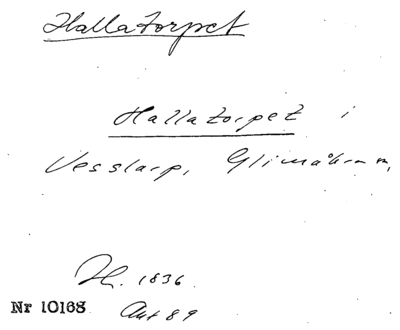 Hallatorpet
Hallatorpet i
Vesslarp, Glimåkra
1836.
Nr 10168
Ant 89